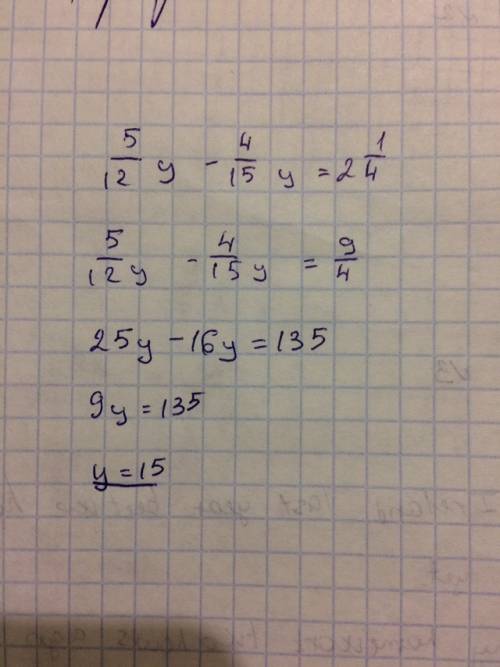 5/12 y - 4/15 y = 2 1/4
5/12 y - 4/15 y = 9/4
25y - 16y = 135
9y = 135
y = 15